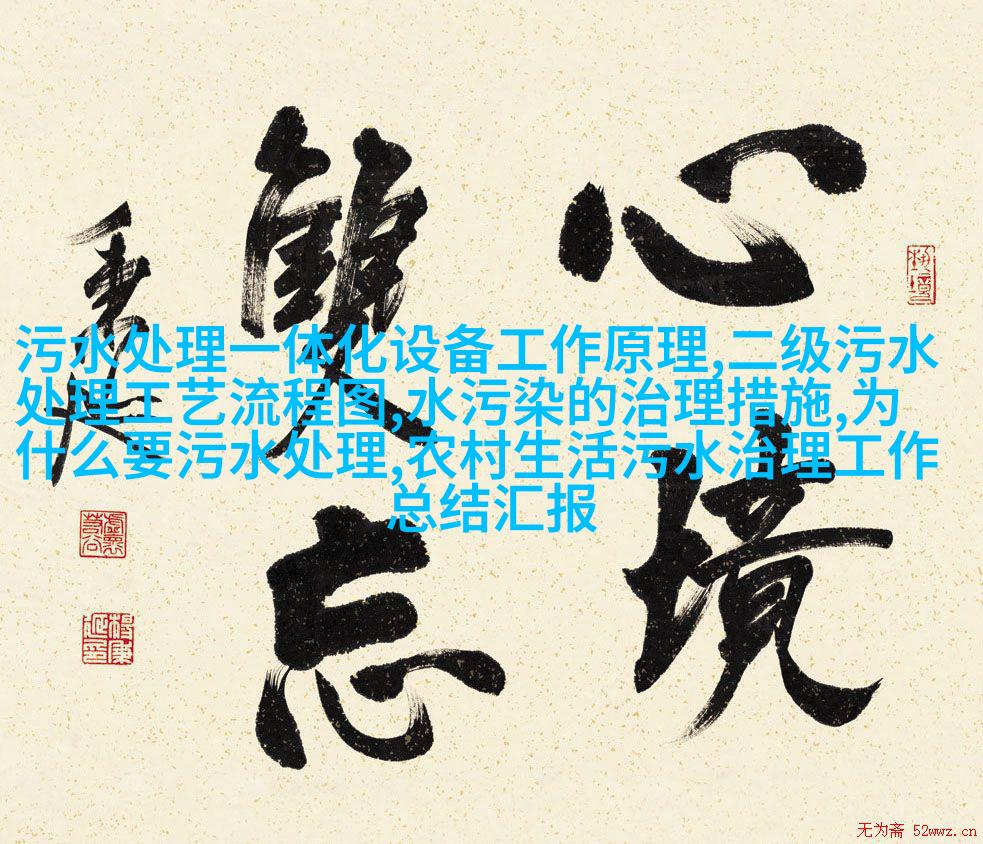 心境
雙忘
污水处理一体化设备工作原理,二级污水
处理工艺流程图,水污染的治理措施,为
什么要污水处理,农村生活污水治理工作
总结汇报
无为斋 52wwz.cn